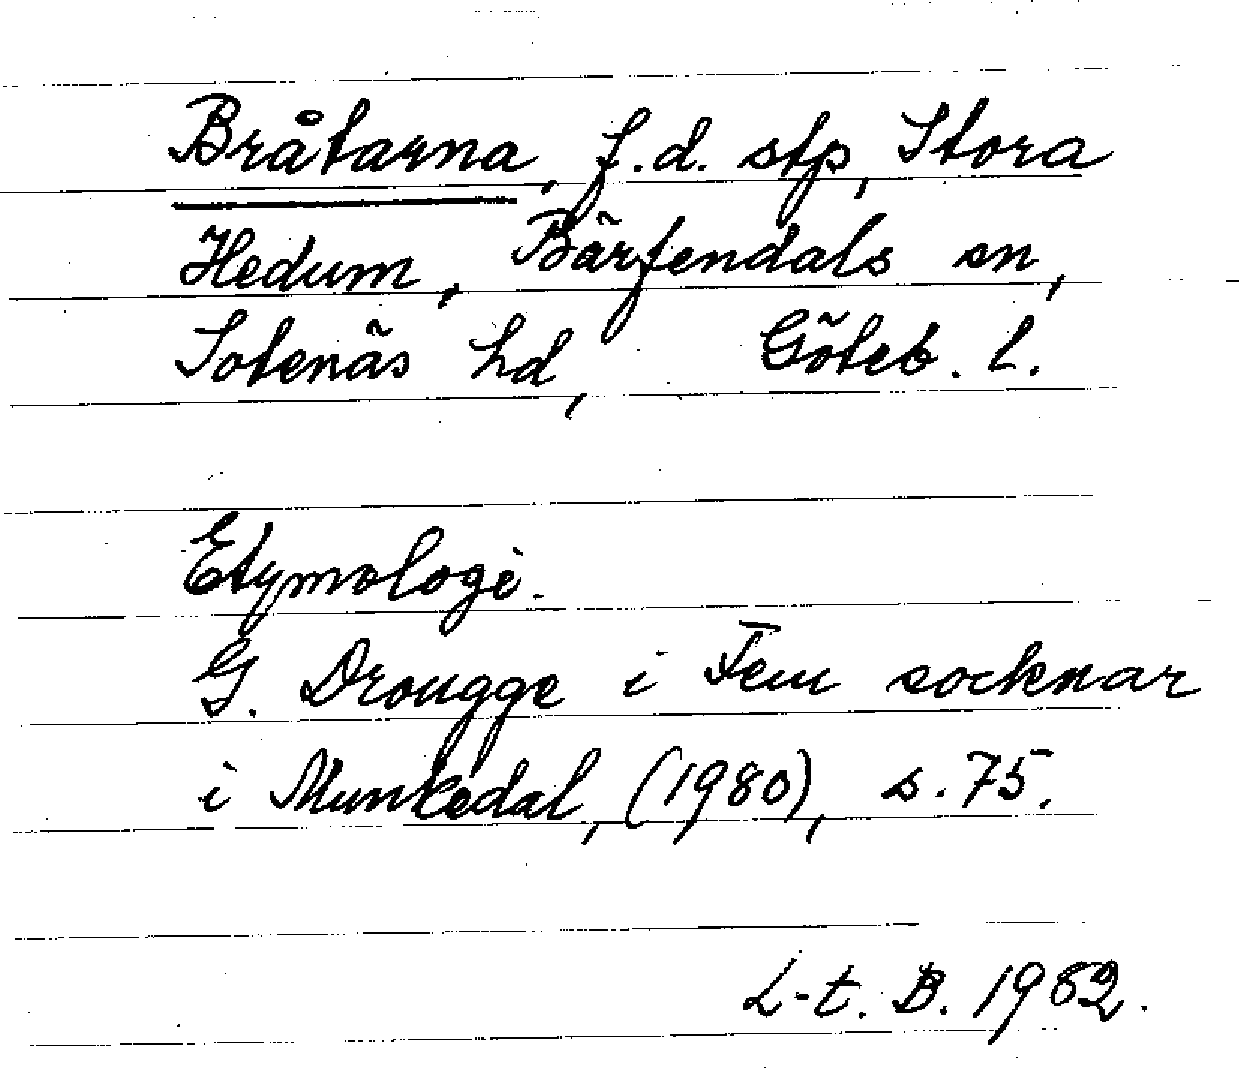 Bråtarna, f.d. stp, Stora
Hedum, Bärfendals sn,
Sotenäs hd, Göteb. l.
Etymologi.
G. Drougge i Fem socknar
i Munkedal, (1980), s. 75.
L-t. B. 1982.